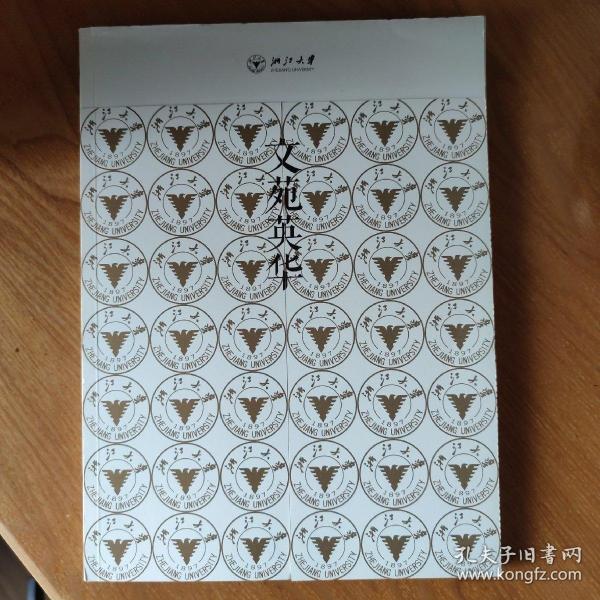 浙江大学
ZHEJIANG UNIVERSITY
文苑英华
浙江大学
1897
ZHEJIANG UNIVERSITY
孔夫子旧书网
www.kongfz.com